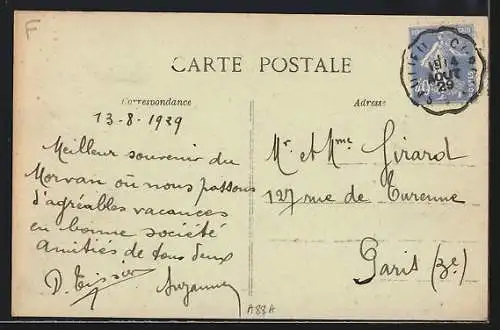 F
CARTE POSTALE
Correspondance
Adresse
13-8-1929
Meilleur souvenir du
Morvan où nous passons
d'agréables vacances
en bonne société
Amitiés de tous deux
D. Tissier
Suzanne
Mr. et Mme Girard
127 rue de Turenne
Paris (3e)
14
AOUT
29
A83A